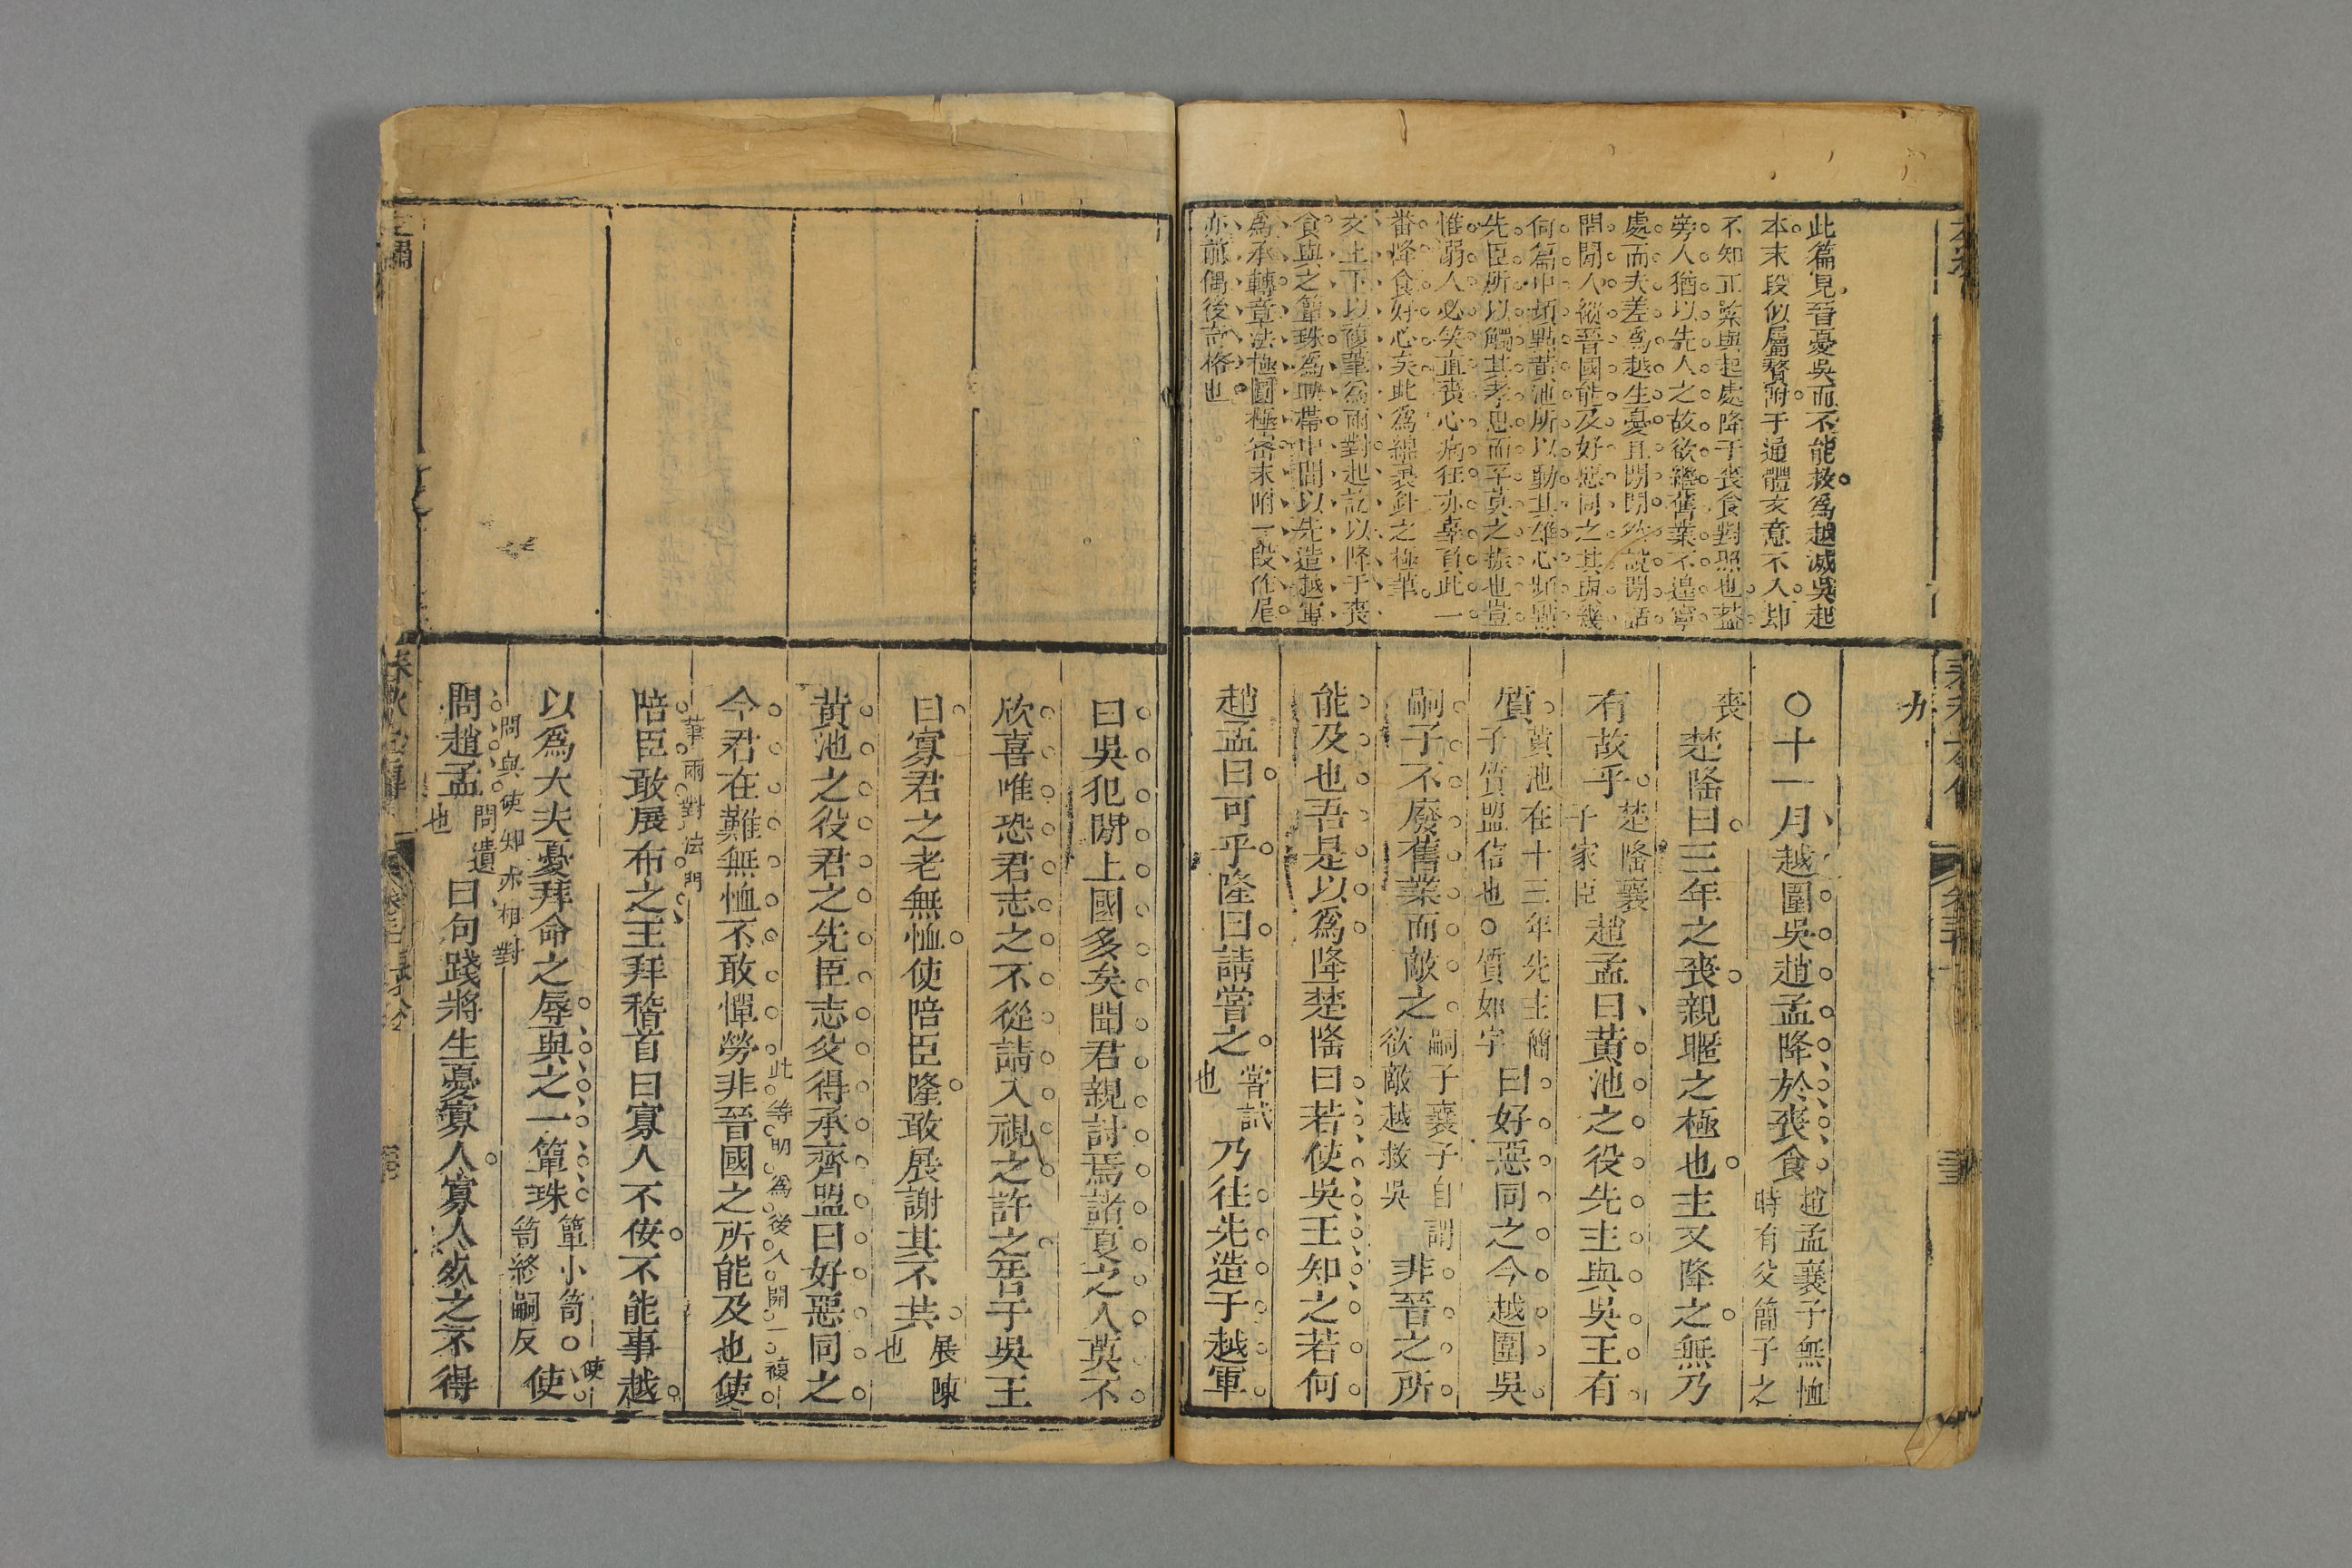 此篇見晉憂吳而不能救爲越滅吳起
本末段似屬贅附于通體文意不入却
不知正業與起處降于喪食對照也葢
旁人猶以先人之故欲繼舊業不遑寧
處而夫差爲越生憂且閒閒
閒問人縱晉國能及好惡同之其與幾
何篇中頻點黃池所以動其雄心頻點
先臣所以觸其孝思而卒莫之振也豈
惟溺人必笑直喪心病狂亦辜負此一
番降食好心矣此爲綿裏針之極筆
文上下以複筆爲兩對起訖以降于喪
食與之簞珠爲映帶中間以先造越軍
爲承轉章法極圓極密末附一段作尾
亦前偶後奇格也
九
○十一月越圍吳趙孟降於喪食趙孟襄子無恤時有父簡子之
喪楚隆曰三年之喪親暱之極也主又降之無乃
有故乎楚隆襄子家臣趙孟曰黃池之役先主與吳王有
質黃池在十三年先主簡子質盟信也○質如字曰好惡同之今越圍吳
嗣子不廢舊業而敵之嗣子襄子自謂欲敵越救吳非晉之所
能及也吾是以爲降楚隆曰若使吳王知之若何
趙孟曰可乎隆曰請嘗之嘗試也乃往先造于越軍
曰吳犯閒上國多矣聞君親討焉諸夏之人莫不
欣喜唯恐君志之不從請入視之許之告于吳王
曰寡君之老無恤使陪臣隆敢展謝其不共展陳也
黃池之役君之先臣志父得承齊盟曰好惡同之
今君在難無恤不敢憚勞非晉國之所能及也使
此等明爲後人開一複筆兩對法門
陪臣敢展布之王拜稽首曰寡人不佞不能事越
以爲大夫憂拜命之辱與之一簞珠簞小笥○笥終嗣反使
問與使知亦相對
問趙孟問遺也曰句踐將生憂寡人寡人死之不得